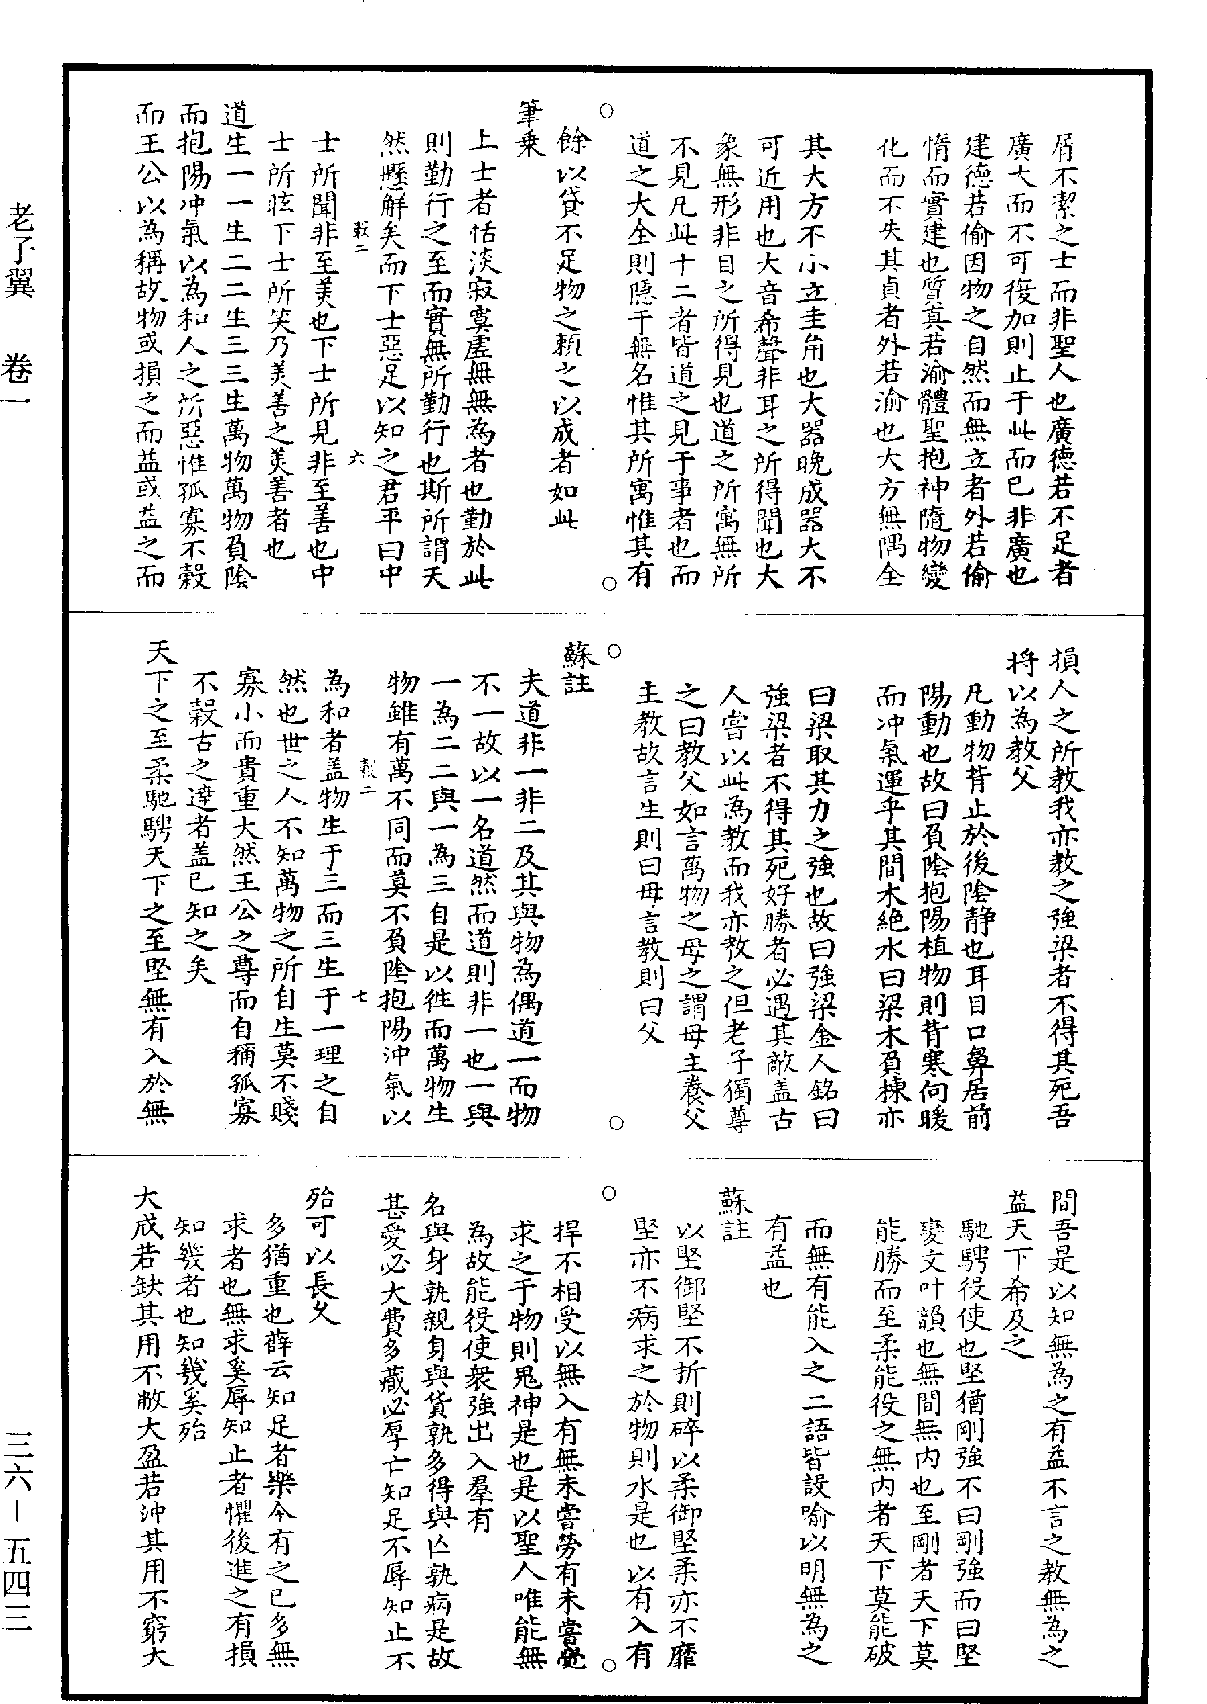 屑不潔之士而非聖人也廣德若不足者
廣大而不可復加則止于此而已非廣也
建德若偷因物之自然而無立者外若偷
惰而實建也質真若渝體聖抱神隨物變
化而不失其貞者外若渝也大方無隅全
其大方不小立圭角也大器晚成器大不
可近用也大音希聲非耳之所得聞也大
象無形非目之所得見也道之所寓無所
不見凡此十二者皆道之見于事者也而
道之大全則隱于無名惟其所寓惟其有
餘以貸不足物之賴之以成者如此
筆乗
上士者恬淡寂寞虛無無為者也勤於此
則勤行之至而實無所勤行也斯所謂天
然懸解矣而下士惡足以知之君平曰中
六
士所聞非至美也下士所見非至善也中
士所眩下士所笑乃美善之美善者也
道生一一生二二生三三生萬物萬物負陰
而抱陽冲氣以為和人之所惡惟孤寡不穀
而王公以為稱故物或損之而益或益之而
損人之所教我亦教之強梁者不得其死吾
将以為教父
凡動物背止於後陰静也耳目口鼻居前
陽動也故曰負陰抱陽植物則背寒向暖
而冲氣運乎其間木絶水曰梁木負棟亦
曰梁取其力之強也故曰強梁金人銘曰
強梁者不得其死好勝者必遇其敵盖古
人嘗以此為教而我亦教之但老子獨尊
之曰教父如言萬物之母之謂母主養父
主教故言生則曰母言教則曰父
蘇註
夫道非一非二及其與物為偶道一而物
不一故以一名道然而道則非一也一與
一為二二與一為三自是以徃而萬物生
物雖有萬不同而莫不負陰抱陽沖氣以
七
為和者盖物生于三而三生于一理之自
然也世之人不知萬物之所自生莫不賤
寡小而貴重大然王公之尊而自稱孤寡
不穀古之達者盖已知之矣
天下之至柔馳騁天下之至堅無有入於無
間吾是以知無為之有益不言之教無為之
益天下希及之
馳騁役使也堅猶剛強不曰剛強而曰堅
變文叶韻也無間無内也至剛者天下莫
能勝而至柔能役之無内者天下莫能破
而無有能入之二語皆設喻以明無為之
有益也
蘇註
以堅御堅不折則碎以柔御堅柔亦不靡
堅亦不病求之於物則水是也以有入有
捍不相受以無入有無未嘗勞有未嘗覺
求之于物則鬼神是也是以聖人唯能無
為故能役使衆強出入羣有
名與身孰親身與貨孰多得與亡孰病是故
甚愛必大費多藏必厚亡知足不辱知止不
殆可以長久
多猶重也薛云知足者樂今有之已多無
求者也無求奚辱知止者懼後進之有損
知幾者也知幾奚殆
大成若缺其用不敝大盈若沖其用不窮大
老子翼　卷一
三六－五四三